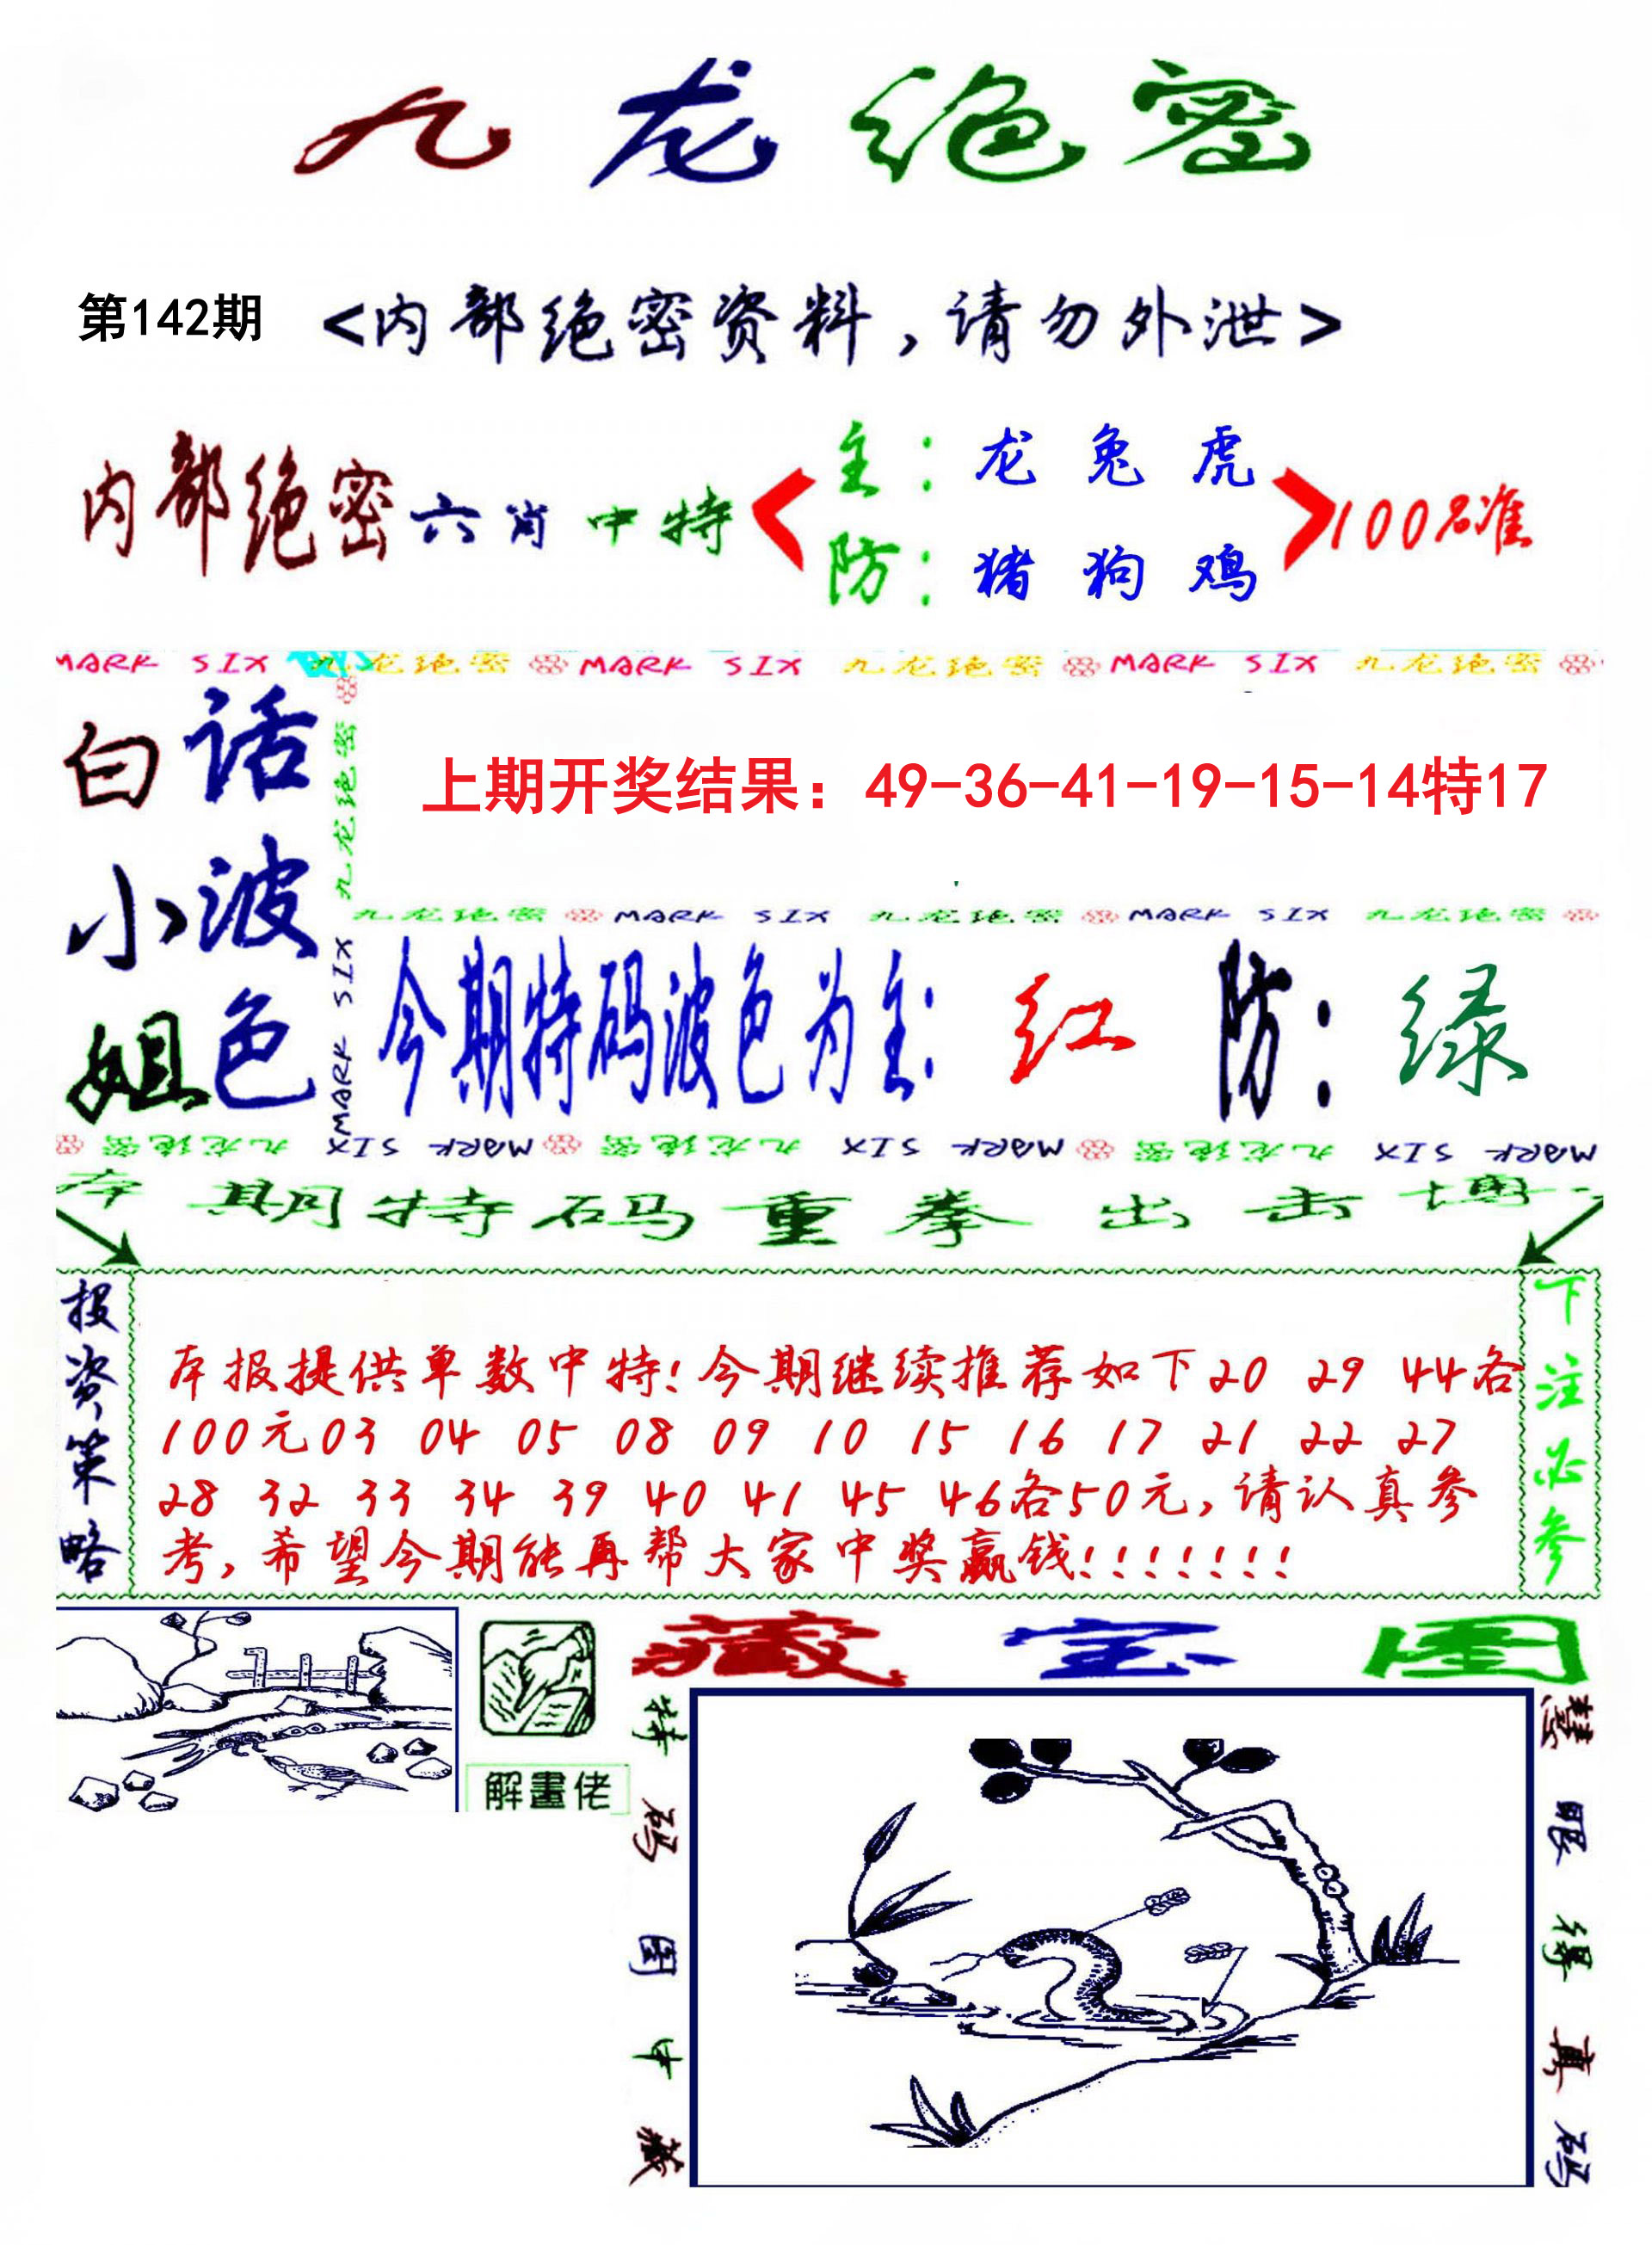 九龙绝密
第142期 <内部绝密资料,请勿外泄>
内部绝密六肖中特
主:龙 兔 虎
防:猪 狗 鸡
100%准
MARK SIX 九龙绝密 MARK SIX 九龙绝密 MARK SIX 九龙绝密
白小姐
话波色
九龙绝密
MARK SIX
上期开奖结果:49-36-41-19-15-14特17
九龙绝密 MARK SIX 九龙绝密 MARK SIX 九龙绝密
今期特码波色为主: 红 防: 绿
九龙绝密 MARK SIX 九龙绝密 MARK SIX 九龙绝密 MARK SIX
本期特码重拳出击博
投资策略
本报提供单数中特!今期继续推荐如下20 29 44各
100元03 04 05 08 09 10 15 16 17 21 22 27
28 32 33 34 39 40 41 45 46各50元,请认真参
考,希望今期能再帮大家中奖赢钱!!!!!!!
下注必参
解畫佬
藏宝图
特码图中藏
慧眼得真码